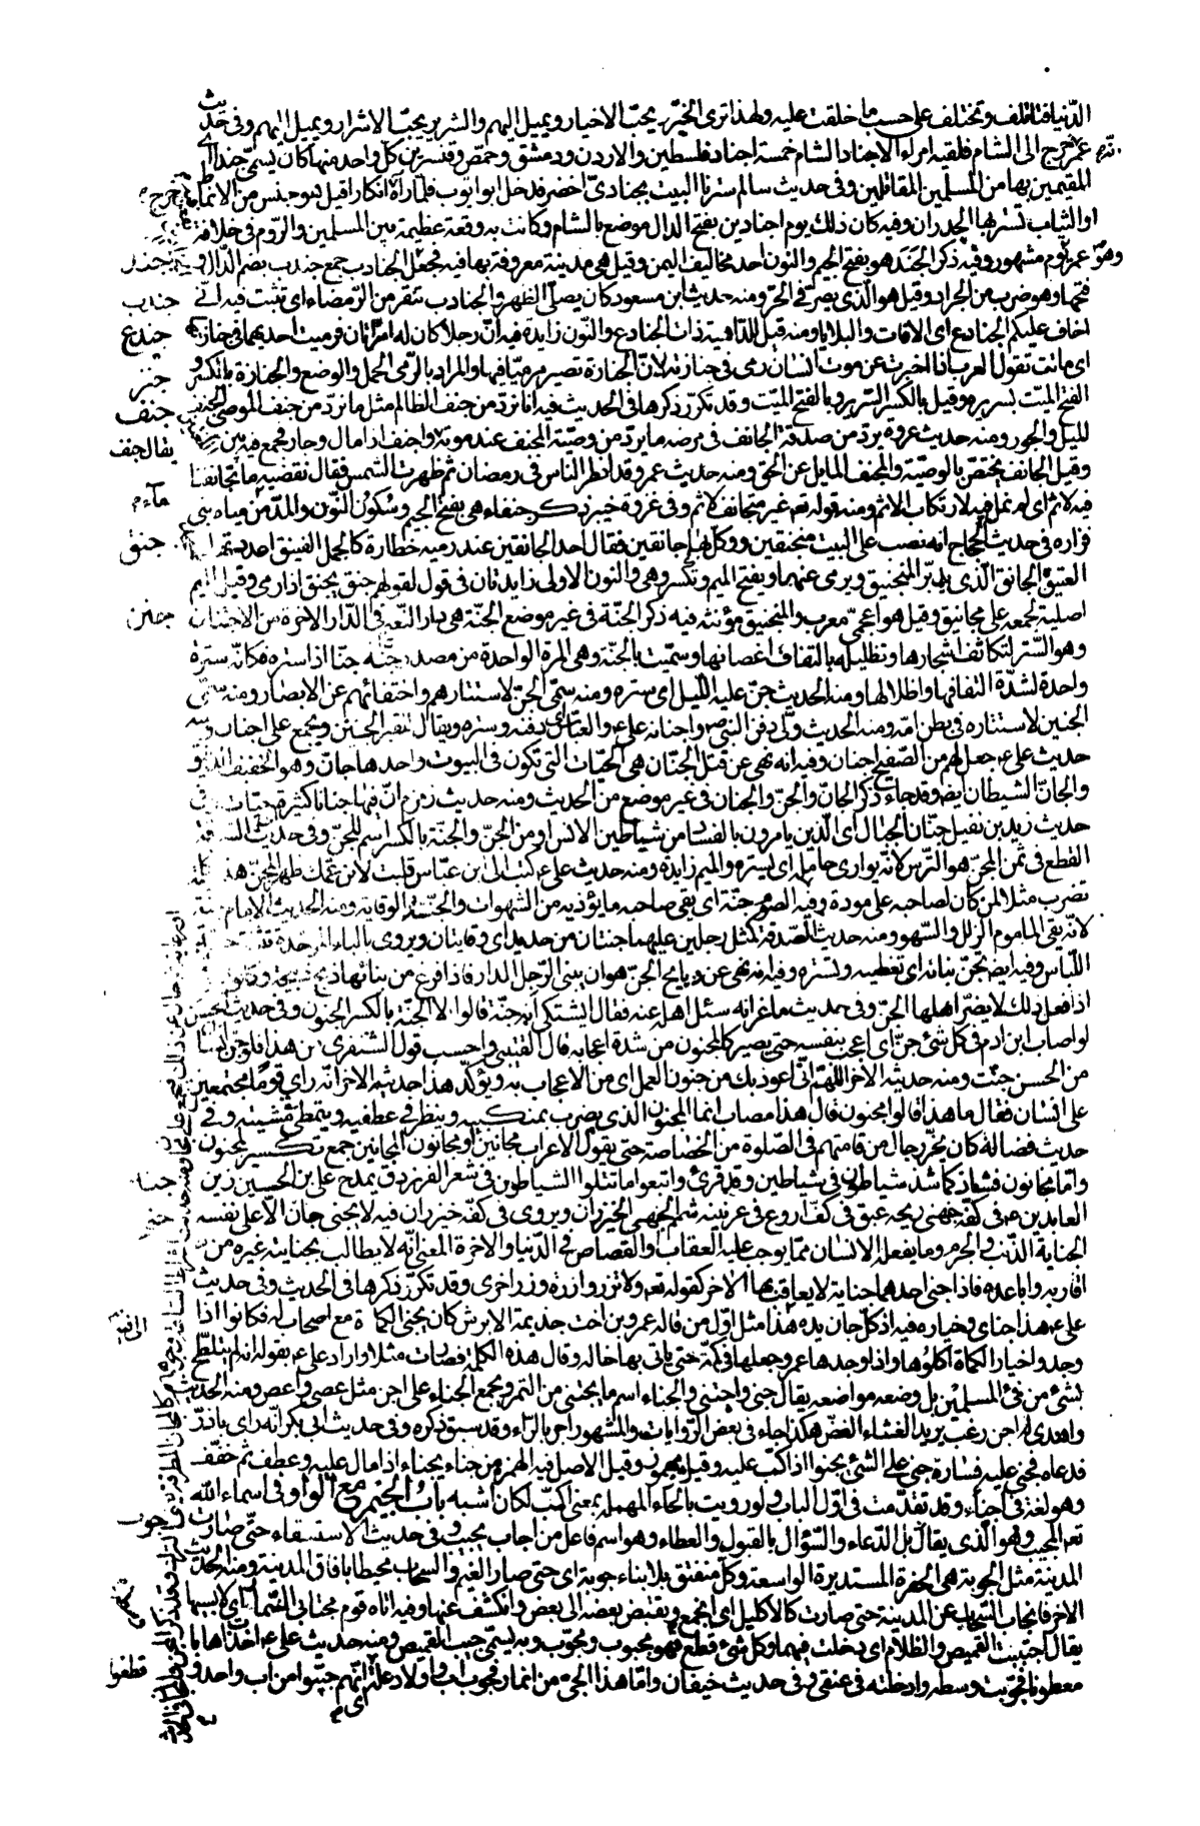 الدّنيا فتأتلف وتختلف على حسب ما خلقت عليه ولهذا ترى الخيّر يحبّ الاخيار ويميل اليهم والشرير يحبّ الاشرار ويميل اليهم وفى حديث
عمر خرج الى الشام فلقيه امراء الاجناد الشام خمسة اجناد فلسطين والاردن ودمشق وحمص وقنسرين كل واحد منها كان يسمّى جندا اى
المقيمين بها من المسلمين المقاتلين وفى حديث سالم سترنا البيت بجنادىّ اخضر فدخل ابو ايوب فلمّا راه انكره قيل هو جنس من الانماط
او الثياب تستر بها الجدران وفيه كان ذلك يوم اجنادين بفتح الدال موضع بالشام وكانت به وقعة عظيمة بين المسلمين والروم فى خلافة
عمر وهو يوم مشهور وفيه ذكر الجَنَد هو بفتح الجيم والنون احد مخاليف اليمن وقيل هى مدينة معروفة بها فيه فجعل الجنادب جمع جندب بضم الدال و
فتحها وهو ضرب من الجراد وقيل هو الّذى يصرّ فى الحرّ ومنه حديث ابن مسعود كان يصلّى الظهر والجنادب تنقز من الرّمضاء اى تثب فيه انّى
اخاف عليكم الجنادع اى الافات والبلايا ومنه قيل للدّاهية ذات الجنادع والنون زايدة فيه انّ رجلا كان له امراتان فرميت احديهما فى جنازتها
اى ماتت تقول العرب اذا اخبرت عن موت انسان رمى فى جنازته لانّ الجنازة تصير مرميّا فيها والمراد بالرّمى الحمل والوضع والجنازة بالكسر و
الفتح الميّت بسريره وقيل بالكسر السّرير وبالفتح الميّت وقد تكرّر ذكرها فى الحديث فيه انا نردّ من جنف الظالم مثل ما نردّ من جنف الموصى الجنف
الميل والجور ومنه حديث عروة يردّ من صدقة الجانف فى مرضه ما يردّ من وصيّة المجنف عند موته واجنف اذا مال وجار فجمع فيه بين
وقيل الجانف يختصّ بالوصيّة والمجنف المايل عن الحق ومنه حديث عمر وقد افطر الناس فى رمضان ثم ظهرت الشمس فقال نقضيه ما تجانفنا
فيه لاثم اى لم نمل فيه لارتكاب الاثم ومنه قوله تعم غير متجانف لاثم وفى غزوة خيبر ذكر جنفاء هى بفتح الجيم وسكون النّون والمدّ من مياه بنى
فزاره فى حديث الحجاج انه نصب على البيت منجنيقين ووكّل بهما جانقين فقال احد الجانقين عند رميه خطارة كالجمل الفينق اعددتها
العتيق الجانق الّذى يدبّر المنجنيق ويرمى عنها ويفتح الميم وتكسر وهى والنون الاولى زايدتان فى قول لقولهم جنق يجنق اذا رمى وقيل الميم
اصلية لجمعه على مجانيق وقيل هو اعجمىّ معرب والمنجنيق مؤنثه فيه ذكر الجنّة فى غير موضع الجنّة هى دار النّعيم فى الدّار الاخرة من الاجتنان
وهو السّتر لتكاثف اشجارها وتظليله بالتفاف اغصانها وسمّيت بالجنّة وهى المرة الواحدة من مصدر جنّه جنّا اذا ستره فكانّه سترة
واحدة لشدّة التفافها واظلالها ومنه الحديث جنّ عليه اللّيل اى ستره ومنه سمّى الجنّ لاستتارهم واختفائهم عن الابصار ومنه سمّى
الجنين لاستتاره فى بطن امّه ومنه الحديث ولى دفن النبى ص واجنانه على ع والعباس اى دفنه وستره ويقال للقبر الجنن ويجمع على اجنان ومنه
حديث على ع جعل لهم من الصّفيح اجنان وفيه انه نهى عن قتل الجنّان هى الحيّات التى تكون فى البيوت واحدها جانّ وهو الخفيف الدّقيق
والجانّ الشيطان ايضا وقد جاء ذكر الجانّ والجنّ والجنان فى غير موضع من الحديث ومنه حديث زمزم انّ فيها جنانا كثيرة اى حيّات وفى
حديث زيد بن نفيل جنّان الجبال اى الّذين يامرون بالفساد من شياطين الانس او من الجنّ والجنّة بالكسر اسم للجنّ وفى حديث السرقة
القطع فى ثمن المجنّ هو الترس لانّه يوارى حامله اى يستره والميم زايدة ومنه حديث على ع كتب الى ابن عبّاس قلبت لابن عمّك ظهر المجنّ هذه كلمة
تضرب مثلا لمن كان لصاحبه على مودة وفيه الصّوم جنّة اى يقى صاحبه ما يؤذيه من الشهوات والجنّة الوقاية ومنه الحديث الامام جنّة
لانّه يقى الماموم الزلل والسّهو ومنه حديث الصّدقة كمثل رجلين عليهما جنتان من حديد اى وقايتان ويروى بالباء الموحدة
اللّباس وفيه ايضا تجنّ بنانه اى تغطيه وتستره وفيه انه نهى عن ذبايح الجنّ هو ان يبنى الرّجل الدار فاذا فرغ من بنائها ذبح ذبيحة وقالوا
اذا فعل ذلك لا يضر اهلها الجنّ وفى حديث ماعز انه سئل اهله عنه فقال ايشتكى ام به جنّة قالوا لا الجنّة بالكسر الجنون وفى حديث الحسن
لو اصاب ابن ادم فى كل شئ جنّ اى اعجب بنفسه حتى يصير كالمجنون من شدة اعجابه قال القتيبى واحسب قول الشنفرى من هذا فلو جنّ انسان
من الحسن جنّت ومنه حديثه الاخر اللّهمّ انّى اعوذ بك من جنون العمل اى من الاعجاب به ويؤكّد هذا حديثه الاخر انّه راى قوما مجتمعين
على انسان فقال ما هذا قالوا مجنون قال هذا مصاب انما المجنون الذى يضرب بمنكبيه وينظر فى عطفيه ويتمطى فى مشيته وفى
حديث فضاله كان يخرّ رجال من قامتهم فى الصّلوة من الخصاصة حتى يقول الاعراب مجانين او مجانون المجانين جمع تكسير لمجنون
وامّا مجانون فشاذ كما شذ شياطون فى شياطين وقد قرئ واتبعوا ما تتلوا الشياطون فى شعر الفرزدق يمدح على بن الحسين زين
العابدين ع فى كفّه جهنى ريحه عبق فى كفّ اروع فى عرنينه شمم الجهنى الخيزران ويروى فى كفّه خيزران فيه لا يجنى جان الّا على نفسه
الجناية الذّنب والجرم وما يفعله الانسان ممّا يوجب عليه العقاب والقصاص فى الدّنيا والاخرة المعنى انّه لا يطالب بجناية غيره من
اقاربه واباعده فاذا جنى احدهما جناية لا يعاقب بها الاخر كقوله تعم ولا تزر وازرة وزر اخرى وقد تكرّر ذكرها فى الحديث وفى حديث
على ع هذا جناى وخياره فيه اذ كلّ جان يده هذا مثل اوّل من قاله عمرو بن اخت جذيمة الابرش كان يجنى الكماة مع اصحاب له فكانوا اذا
وجدوا خيار الكماة اكلوها واذا وجدها عمرو جعلها فى كمّه حتى ياتى بها خاله وقال هذه الكلمة فصارت مثلا واراد على ع بقوله انه لم يتلطّخ
بشئ من فئ المسلمين بل وضعه مواضعه يقال جنى واجتنى والجناء اسم ما يجتنى من الثمر ويجمع الجناء على اجن مثل عصى واعص ومنه الحديث
واهدى له اجن زغب يريد القثاء الغض هكذا جاء فى بعض الرّوايات والمشهور اجر بالراء وقد سبق ذكره وفى حديث ابى بكر انّه راى باذرّ
فدعاه فجنى عليه فسارّه جنى على الشئ يجنوا اذا اكبّ عليه وقيل هو مهموز وقيل الاصل فيه الهمز من جناء يجناء اذا مال عليه وعطف ثم خفّف
وهو لغة فى اجناء وقد تقدّمت فى اوّل الباب ولو رويت بالحاء المهملة بمعنى اكبّ لكان اشبه باب الجيم مع الواو فى اسماء الله
تعم المجيب وهو الّذى يقابل الدّعاء والسّؤال بالقبول والعطاء وهو اسم فاعل من اجاب يجيب وفى حديث الاستسقاء حتّى صارت
المدينة مثل الجوبة هى الحفرة المستديرة الواسعة وكلّ منفتق بلا بناء جوبة اى حتى صار الغيم والسحاب محيطا بافاق المدينة ومنه الحديث
الاخر فانجاب السّحاب عن المدينة حتى صارت كالاكليل اى انجمع وتقبّض بعضه الى بعض وانكشف عنها وفيه اتاه قوم مجتابى النّمار اى لابسيها
يقال اجتبت القميص والظلام اى دخلت فيهما وكل شئ قطع وسطه فهو مجبوب ومجوّب وبه يسمّى جيب القميص ومنه حديث على ع اخذت اهابا
معطونا فجوّبت وسطه وادخلته فى عنقى وفى حديث خيفان وامّا هذا الحىّ من انمار فجوب اب واولاد علّة اى انّهم جيبوا من اب واحد و
جندب
جندع
جنز
جنف
جنق
جنن
جوب
قطعوا